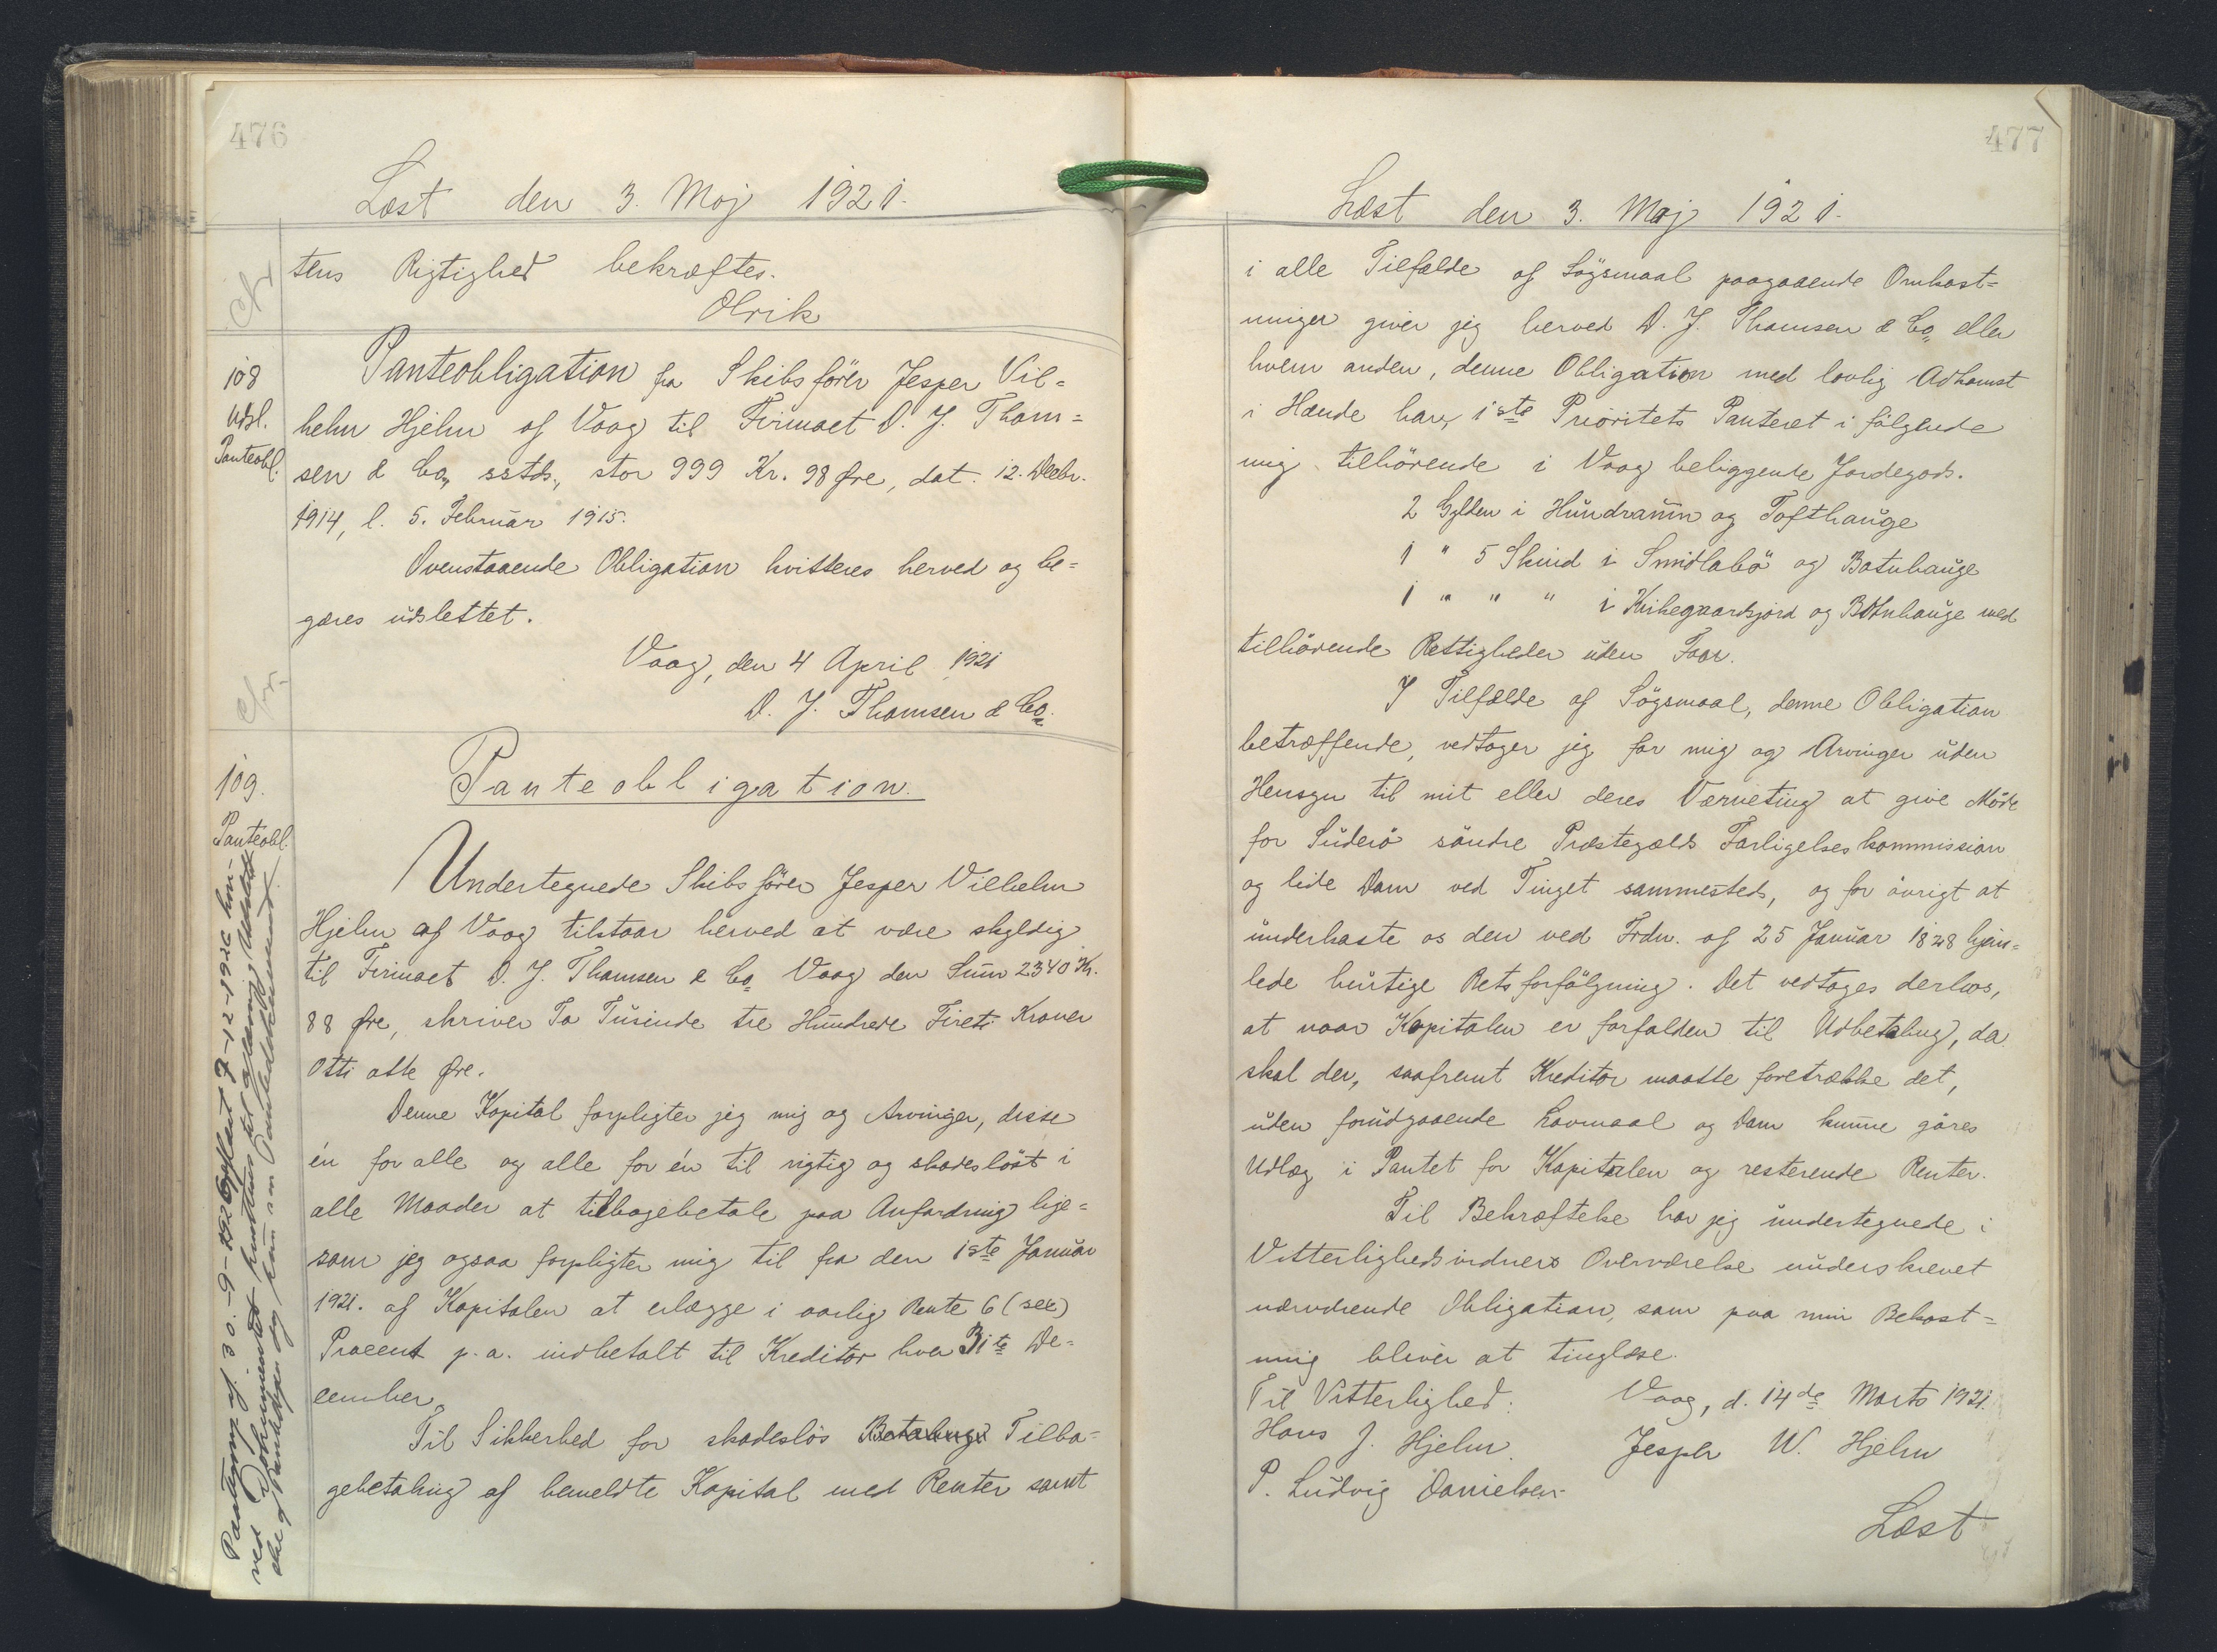 476
Læst den 3. Maj 1921.
tens Rigtighed bekræftes.
Olrik
108
Udsl.
Panteobl.
Panteobligation fra Skibsfører Jesper Vil=
helm Hjelm af Vaag til Firmaet D. J. Thom=
sen & Co, sstds., stor 999 Kr. 98 Øre, dat. 12. Decbr.
1914, l. 5. Februar 1915.
Ovenstaaende Obligation kvitteres herved og be=
gæres udslettet.
Vaag, den 4 April 1921
D. J. Thomsen & Co.
109.
Panteobl.
Panteobligation.
Undertegnede Skibsfører Jesper Vilhelm
Hjelm af Vaag tilstaar herved at være skyldig
til Firmaet D. J. Thomsen & Co Vaag den Sum 2340 Kr.
88 Øre, skriver To Tusinde tre Hundrede Fireti Kroner
Otti otte Øre.
Denne Kapital forpligter jeg mig og Arvinger, disse
én for alle og alle for én til rigtig og skadesløst i
alle Maader at tilbagebetale paa Anfordring lige=
som jeg ogsaa forpligter mig til fra den 1ste Januar
1921. af Kapitalen at erlægge i aarlig Rente 6 (sex)
Procent p.a. indbetalt til Kreditor hver 31te De=
cember.
Til Sikkerhed for skadesløs Betalings Tilba=
gebetaling af bemeldte Kapital med Renter samt
Paategnp. af 30.-9-1926 aflæst 7-12-1926
ved Dokumentet Udslettet
og kun som
477
Læst den 3. Maj 1921.
i alle Tilfælde af Søgsmaal paagaaende Omkost=
ninger giver jeg herved D. J. Thomsen & Co eller
hvem anden, denne Obligation med lovlig Adkomst
i Hænde har, 1ste Prioritets Panteret i følgende
mig tilhørende i Vaag beliggende Jordegods.
2 Gylden i Hundranum og Tofthauge
1 " 5 Skind i Smidlabø og Botnhauge
1 " " " i Kirkegaardsjord og Botnhauge med
tilhørende Rettigheder uden Faar.
I Tilfælde af Søgsmaal, denne Obligation
betræffende, vedtager jeg for mig og Arvinger uden
Hensyn til mit eller deres Værneting at give Møde
for Suderø søndre Præstegælds Forligelseskommission
og lide Dom ved Tinget sammesteds, og for øvrigt at
underkaste os den ved Frdn. af 25 Januar 1828 hjem=
lede hurtige Retsforfølgning. Det vedtages derhos,
at naar Kapitalen er forfalden til Udbetaling, da
skal der, saafremt Kreditor maatte foretrække det,
uden forudgaaende Lovmaal og Dom kunne gøres
Udlæg i Pantet for Kapitalen og resterende Renter.
Til Bekræftelse har jeg undertegnede i
Vitterlighedsvidners Overværelse underskrevet
nærværende Obligation, som paa min Bekost=
ning bliver at tinglæse.
Til Vitterlighed: Vaag, d. 14de Marts 1921.
Hans J. Hjelm. Jesper W. Hjelm
P. Ludvig Danielsen
Læst